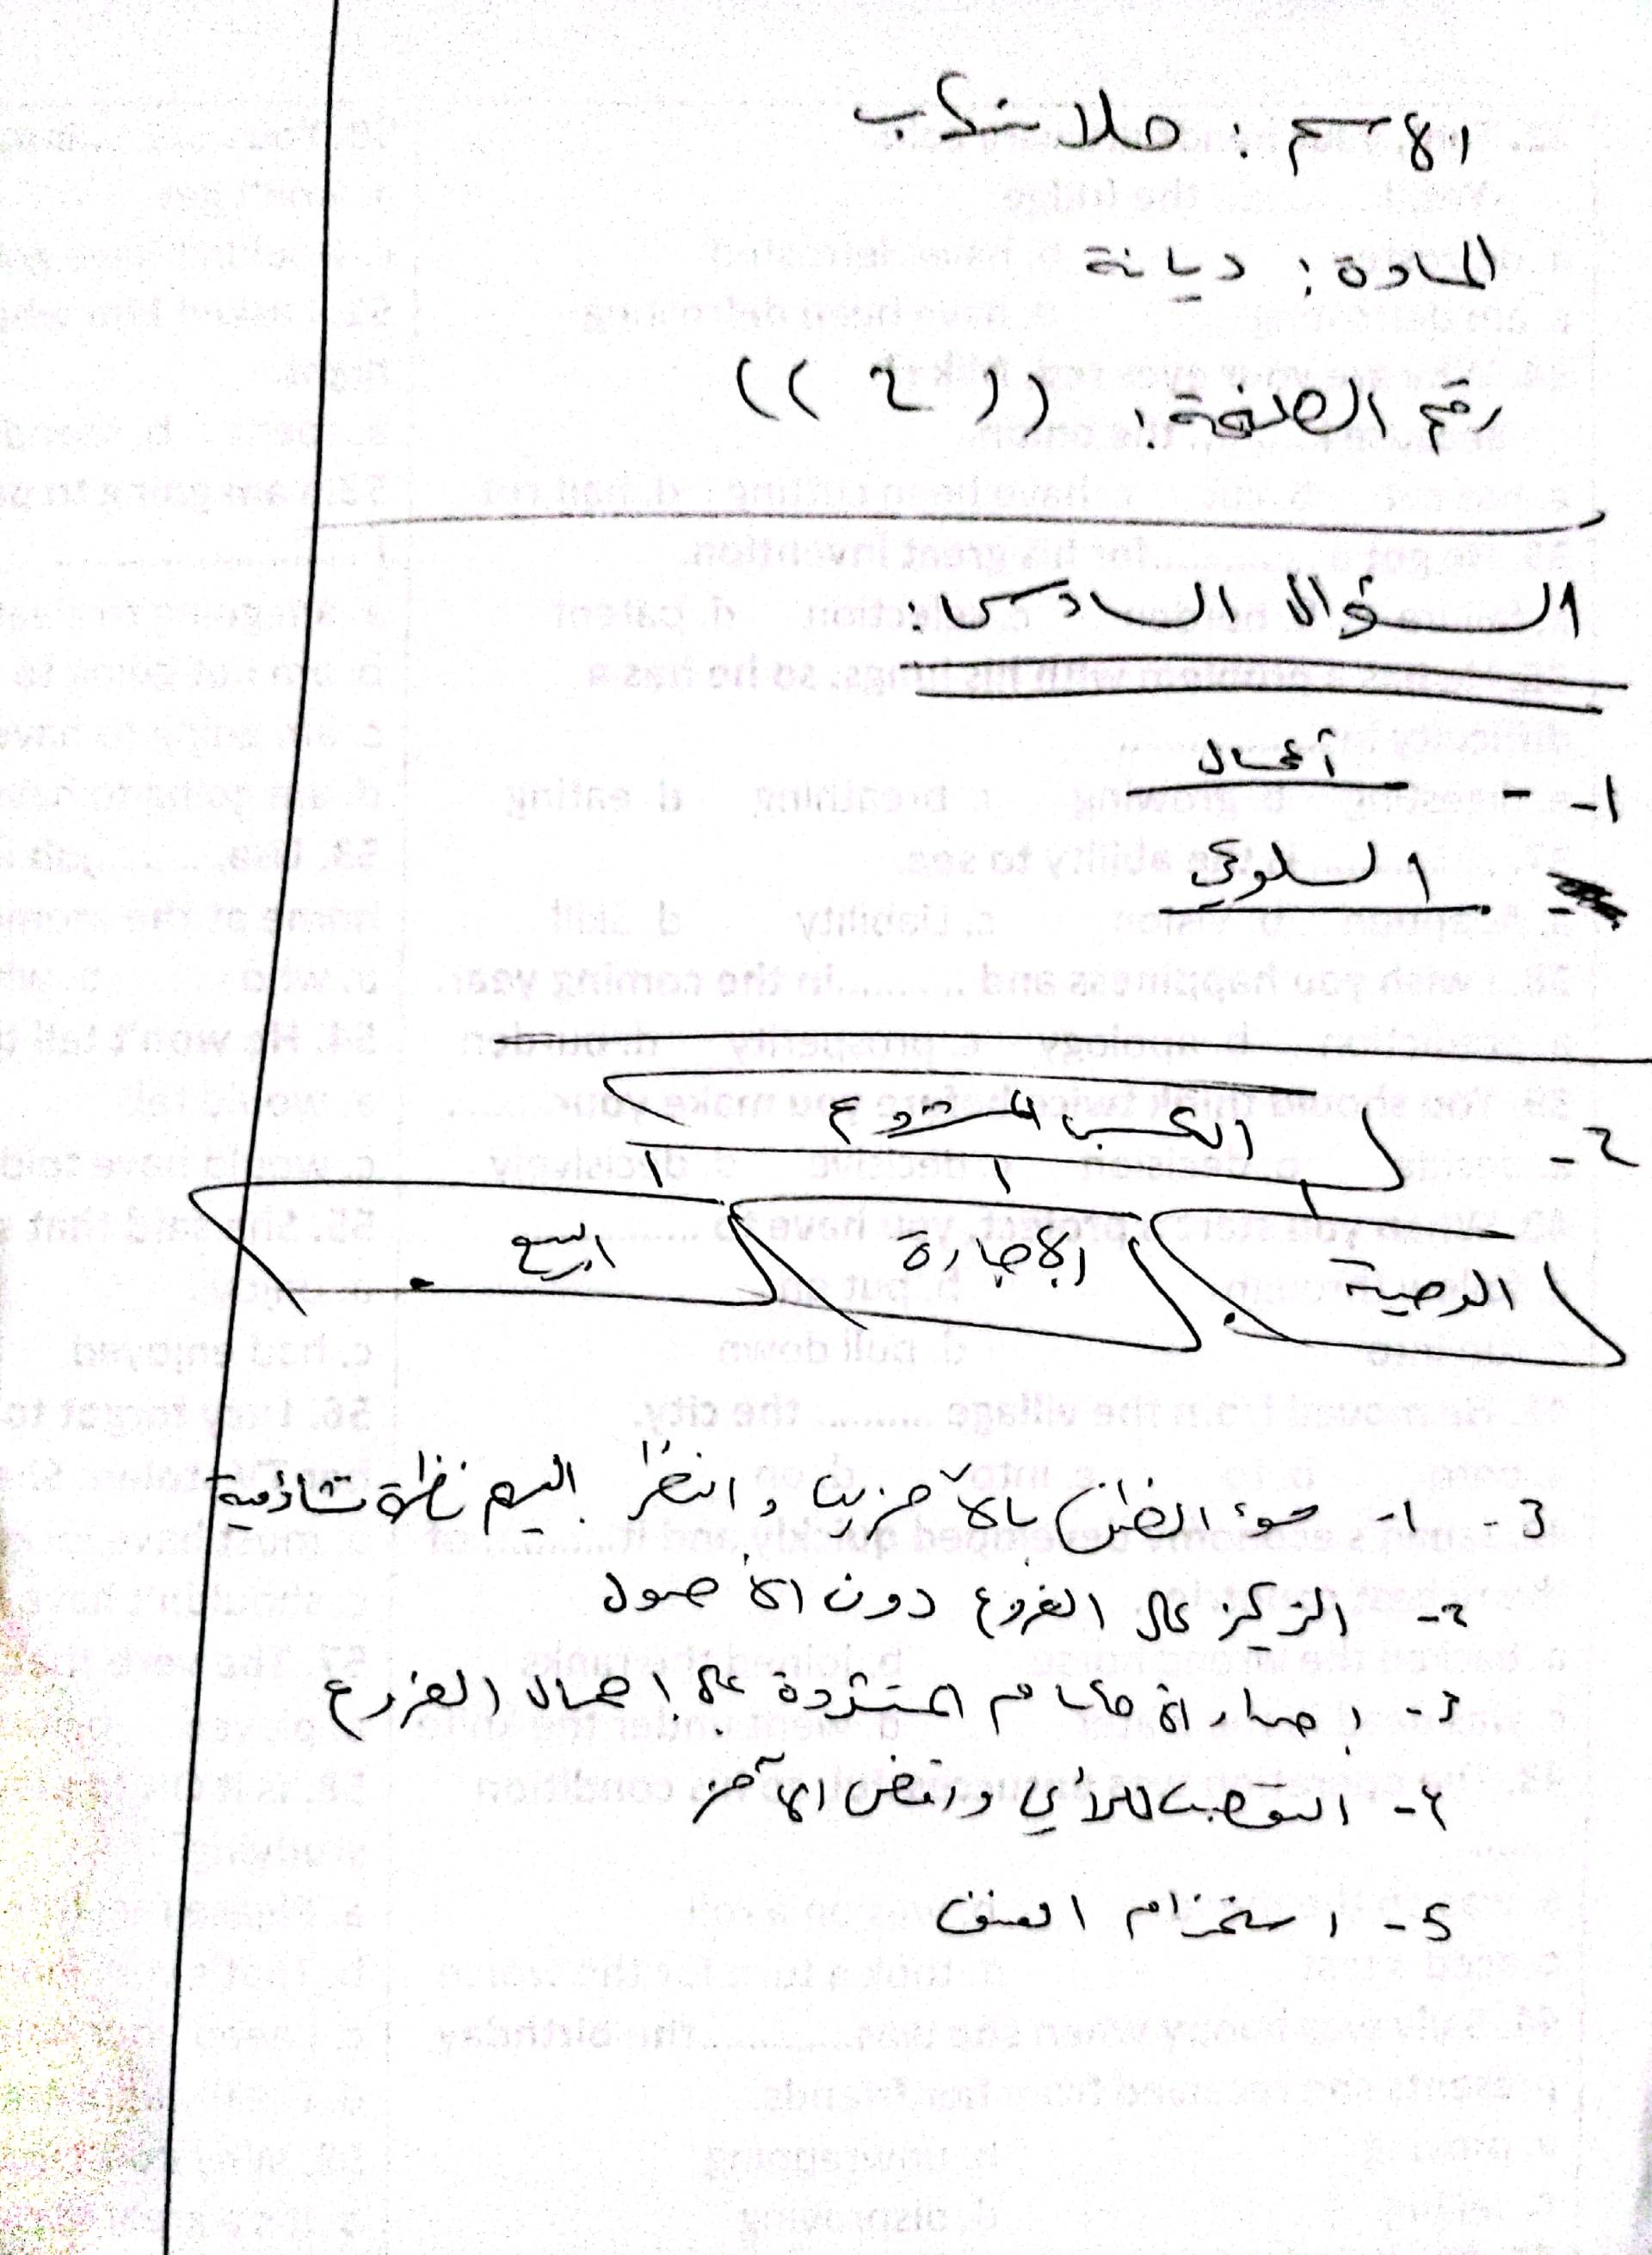 الاسم : حلا شهاب
المادة : ديانة
رقم الصفحة : (( ٢ ))
السؤال السادس :
1- - أعمال
- السلوى
2- الكسب المشروع
الوصية الإجارة البيع
3- 1- سوء الظن بالآخرين والنظر إليهم نظرة تشاؤمية
2- التركيز على الفروع دون الأصول
3- المتشددة على إهمال الفروع
4- التعصب للرأي ورفض الآخر
5- استخدام العنف